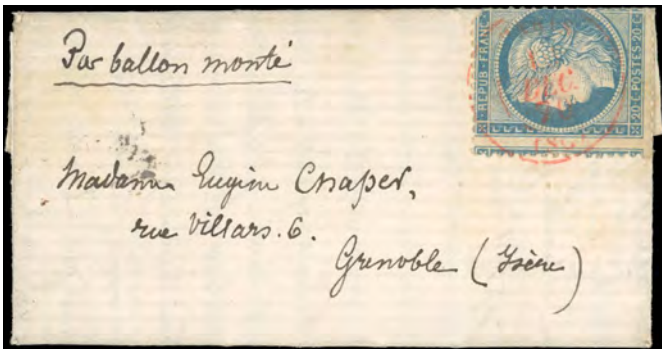 Par ballon monté
RÉPUB · FRANC ·
20 · C · POSTES · 20 · C
DÉC.
(SC)
Madame Eugène Chaper,
rue Villars. 6.
Grenoble (Isère)